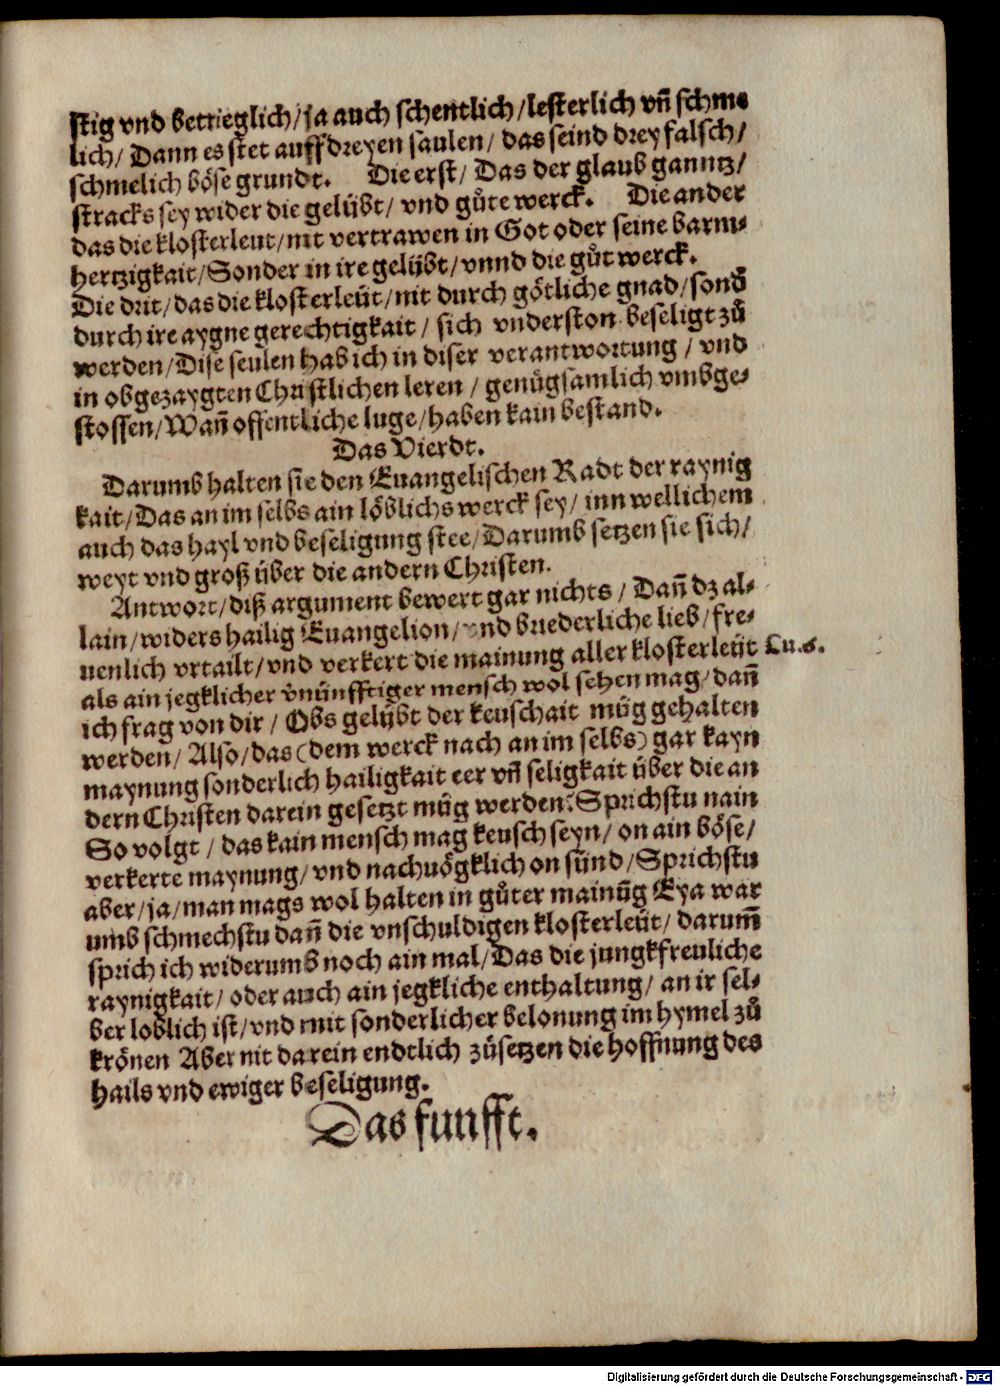 stig vnd betrieglich/ ja auch schentlich/ lesterlich vñ schme
lich/ Dann es stet auff dreyen saulen/ das seind drey falsch/
schmelich böse grundt. Die erst/ Das der glaub ganntz/
stracks sey wider die gelübt/ vnd gůte werck. Die ander
das die klosterleut/ nit vertrawen in Got oder seine barm⸗
hertzigkait/ Sonder in ire gelübt/ vnnd die gůt werck.
Die drit/ das die klosterleüt/ nit durch götliche gnad/ sonď
durch ire aygne gerechtigkait/ sich vnderston beseligt zů
werden/ Dise seulen hab ich in diser verantwortung/ vnd
in obgezaygten Christlichen leren/ genůgsamlich vmbge⸗
stossen/ Wañ offentliche luge/ haben kain bestand.
Das Vierdt.
Darumb halten sie den Euangelischen Radt der raynig
kait/ Das an im selbs ain löblichs werck sey/ inn wellichem
auch das hayl vnd beseligung stee/ Darumb setzen sie sich/
weyt vnd groß über die andern Christen.
Antwort/ diß argument bewert gar nichts/ Dañ dz al⸗
lain/ widers hailig Euangelion/ vnd bruederliche lieb/ fre⸗
uenlich vrtailt/ vnd verkert die mainung aller klosterleüt
Lu.6.
als ain jegklicher v̄nünfftiger mensch wol sehen mag/ dañ
ich frag von dir/ Obs gelübt der keuschait müg gehalten
werden/ Also/ das (dem werck nach an im selbs) gar kayn
maynung sonderlich hailigkait eer vñ seligkait über die an
dern Christen darein gesetzt müg werden: Sprichstu nain
So volgt/ das kain mensch mag keusch seyn/ on ain böse/
verkerte maynung/ vnd nachuögklich on sünd/ Sprichstu
aber/ ja/ man mags wol halten in gůter mainūg Eya war
umb schmechstu dañ die vnschuldigen klosterleüt/ darum̄
sprich ich widerumb noch ain mal/ Das die jungkfreuliche
raynigkait/ oder auch ain jegkliche enthaltung/ an ir sel⸗
ber loblich ist/ vnd mit sonderlicher belonung im hymel zů
krönen Aber nit darein endtlich zůsetzen die hoffnung des
hails vnd ewiger beseligung.
Das funfft.
Digitalisierung gefördert durch die Deutsche Forschungsgemeinschaft - DFG